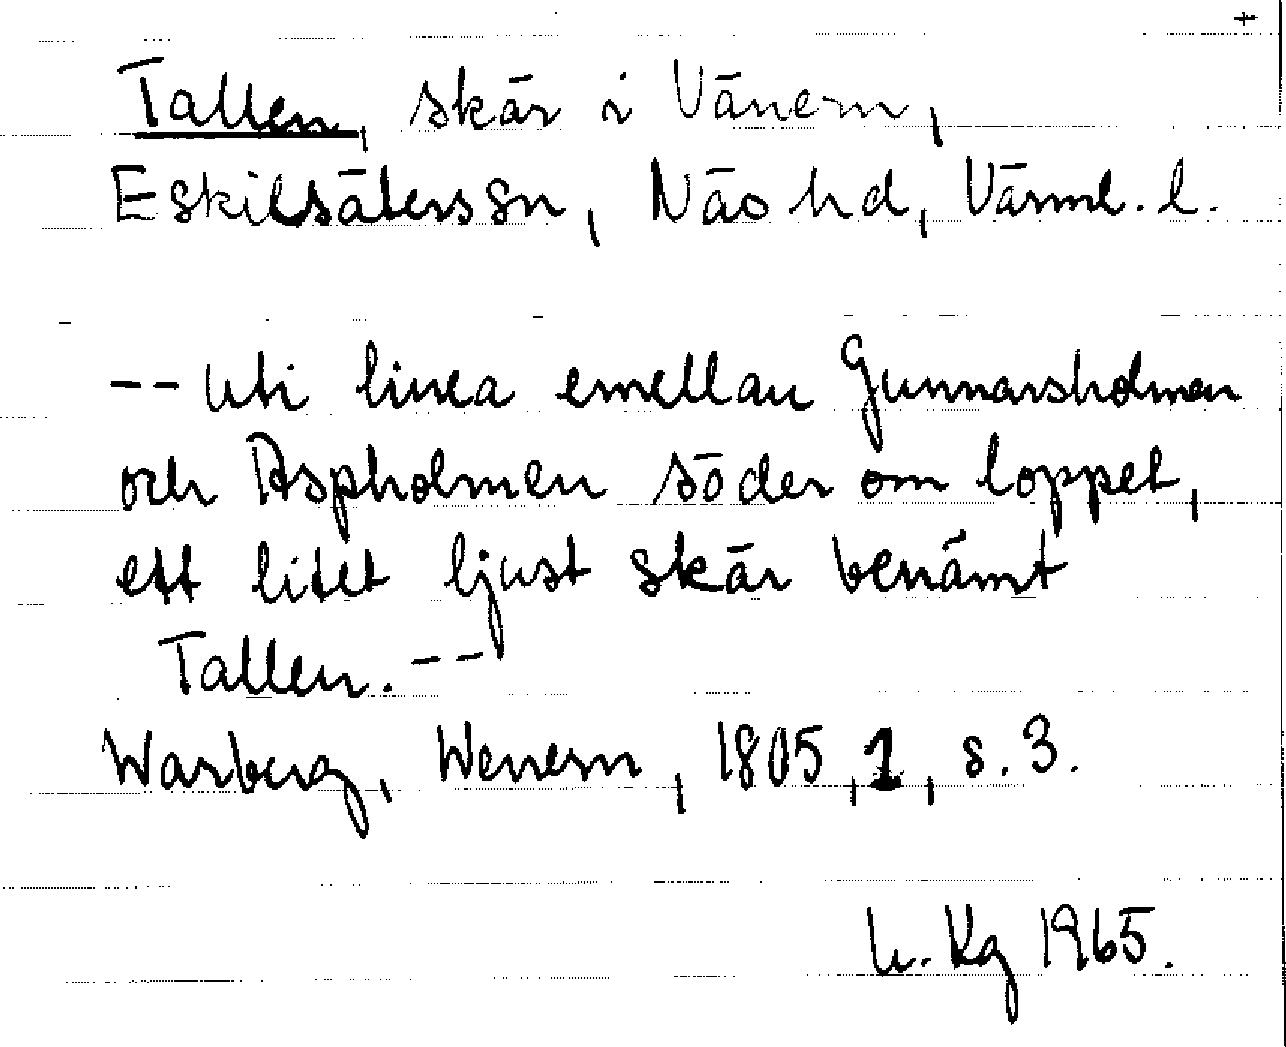 +
Tallen, skär i Vänern,
Eskilsäterssn, Näs hd, Värml. l.
-- Uti linea emellan Gunnarsholmen
och Aspholmen söder om loppet,
ett litet ljust skär benämt
Tallen. --
Warberg, Wenern, 1805, 1, s. 3.
Kg 1965.